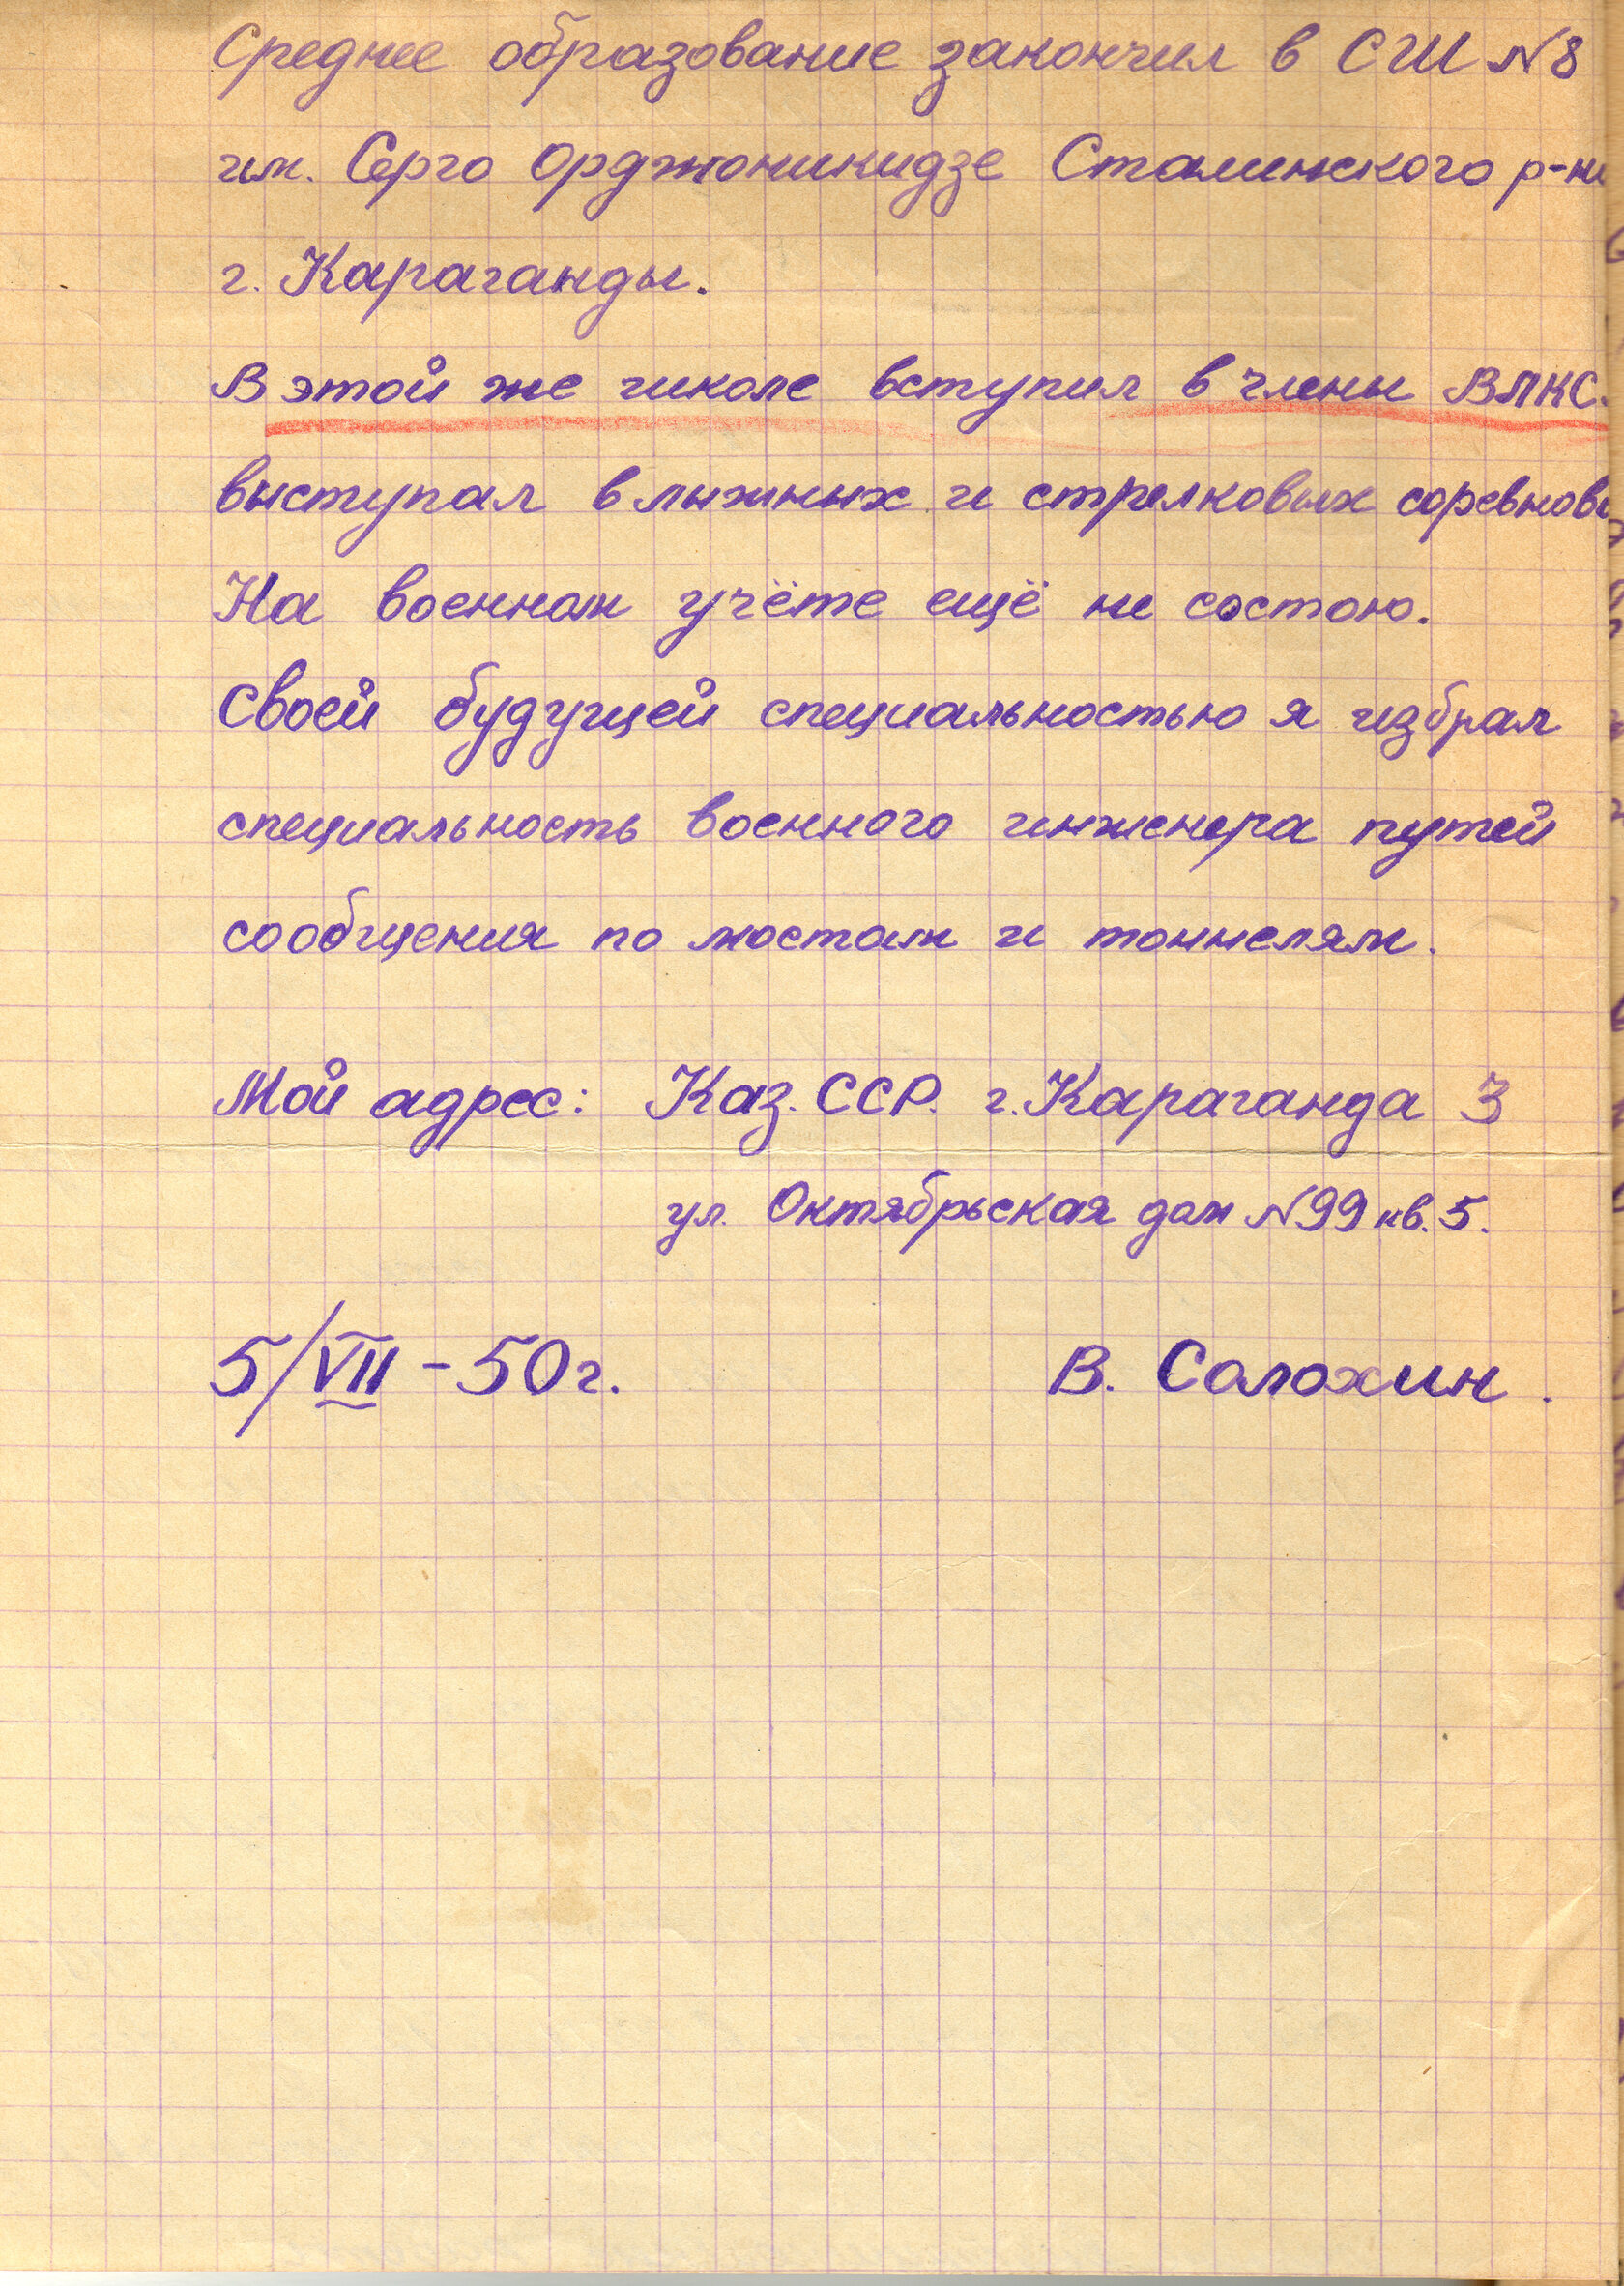 Среднее образование закончил в СШ №8
им. Серго Орджоникидзе Сталинского р-на
г. Караганды.
В этой же школе вступил в члены ВЛКС
выступал в лыжных и стрелковых соревнов
На военном учёте ещё не состою.
Своей будущей специальностью я избрал
специальность военного инженера путей
сообщения по мостам и тоннелям.
Мой адрес: Каз. ССР. г. Караганда 3
ул. Октябрьская дом №99 кв. 5.
5/VII - 50 г.
В. Солохин.